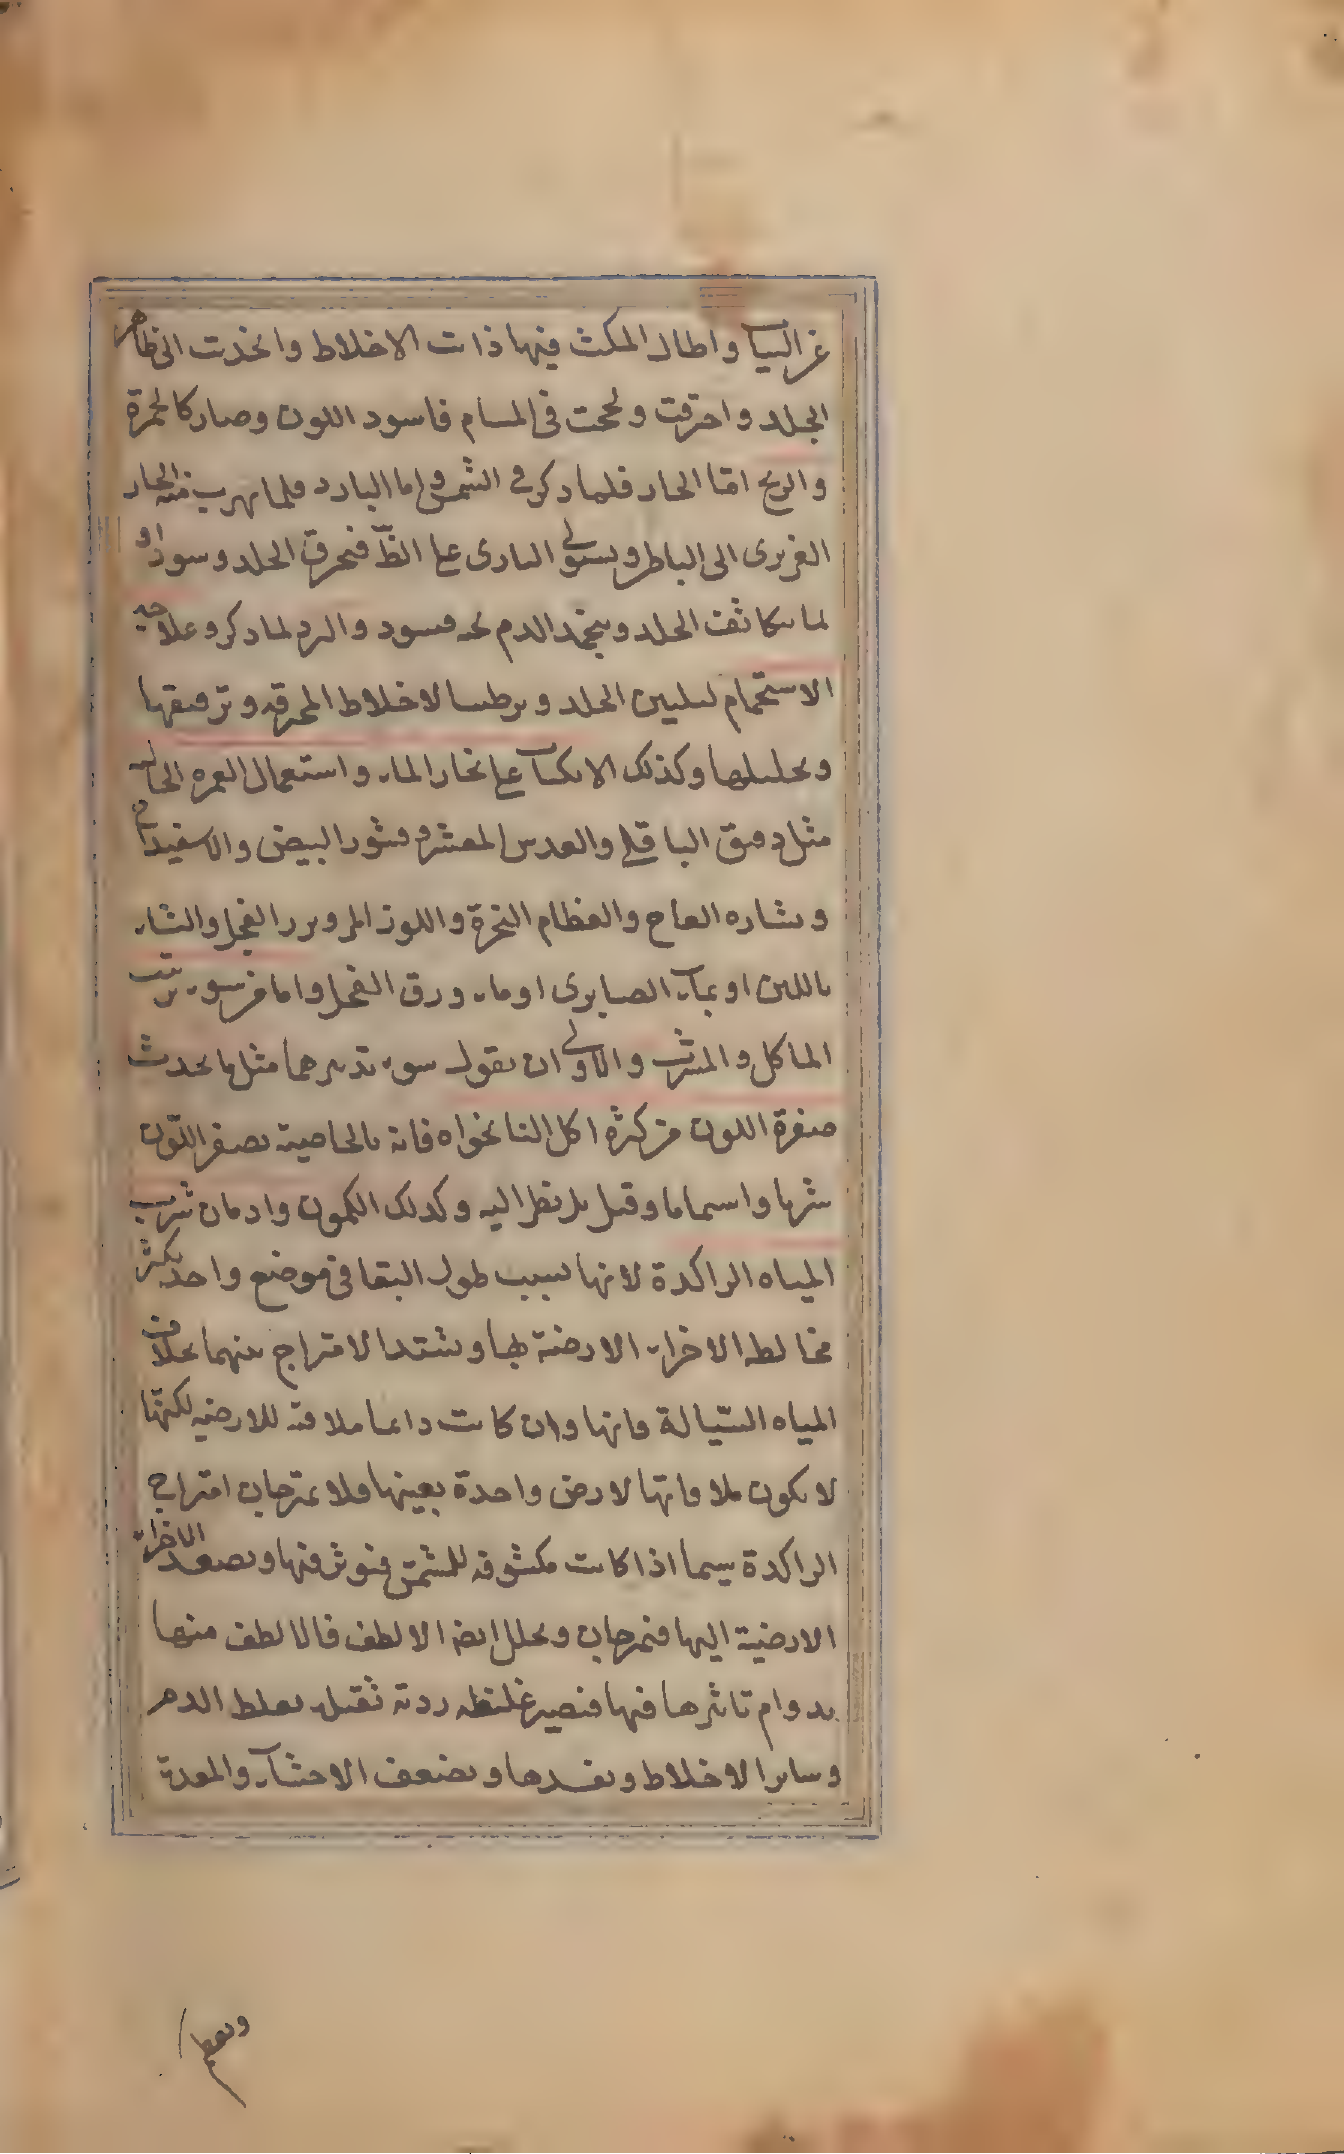 عن الثياب واطال المكث فيها ذابت الاخلاط وانجذبت الى ظاهر
الجلد واحترقت ولحجت فى المسام فاسود اللون وصار كالحمرة
والريح امّا الحار فلما ذكر فى الشمس واما البارد فلما يهرب منه الحار
الغريزى الى الباطن ويستولى النارى على الظ فيحرق الجلد ويسود او
لما يتكاثف الجلد وينجمد الدم تحته فيسود والبرد لما ذكر وعلاجه
الاستحمام لتليين الجلد وترطيب الاخلاط المحرقه وترقيقها
وتحليلها وكذلك الانكباب على بخار الماء واستعمال الغمره الجاليه
مثل دقيق الباقلى والعدس المقشر وقشور البيض والاسفيداج
ونشاره العاج والعظام النخرة واللوز المر وبزر الفجل والنشاء
باللبن او بماء الصابون او ماء ورق الفجل واما من سوء ترتيب
الماكل والمشرب والاولى ان يقول سوء تدبيرهما مثل ما يحدث
صفرة اللون من كثره اكل النانخواه فانه بالخاصية يصفر اللّون
شربا واشماما وقيل بل بنظر اليه وكذلك الكمون وادمان شرب
المياه الراكدة لانها بسبب طول البقا فى موضع واحد يكثر
مخالطه الاجزاء الارضية بها ويشتد الامتزاج بينهما بخلاف
المياه السّيالة فانها وان كانت دائما ملاقية للارضيه لكنّها
لا يكون ملاقاتها لارض واحدة بعينها فلا يمتزجان امتزاج
الراكدة سيما اذا كانت مكشوفه للشمس فيوثر فيها ويصعد الاجزاء
الارضية اليها فيمزجان ويحلل ايضا الالطف فالالطف منها
بدوام تاثيرها فيها فتصير غليظه ردية ثقيله يغلظ الدم
وساير الاخلاط ويفسدها ويضعف الاحشاء والمعدة